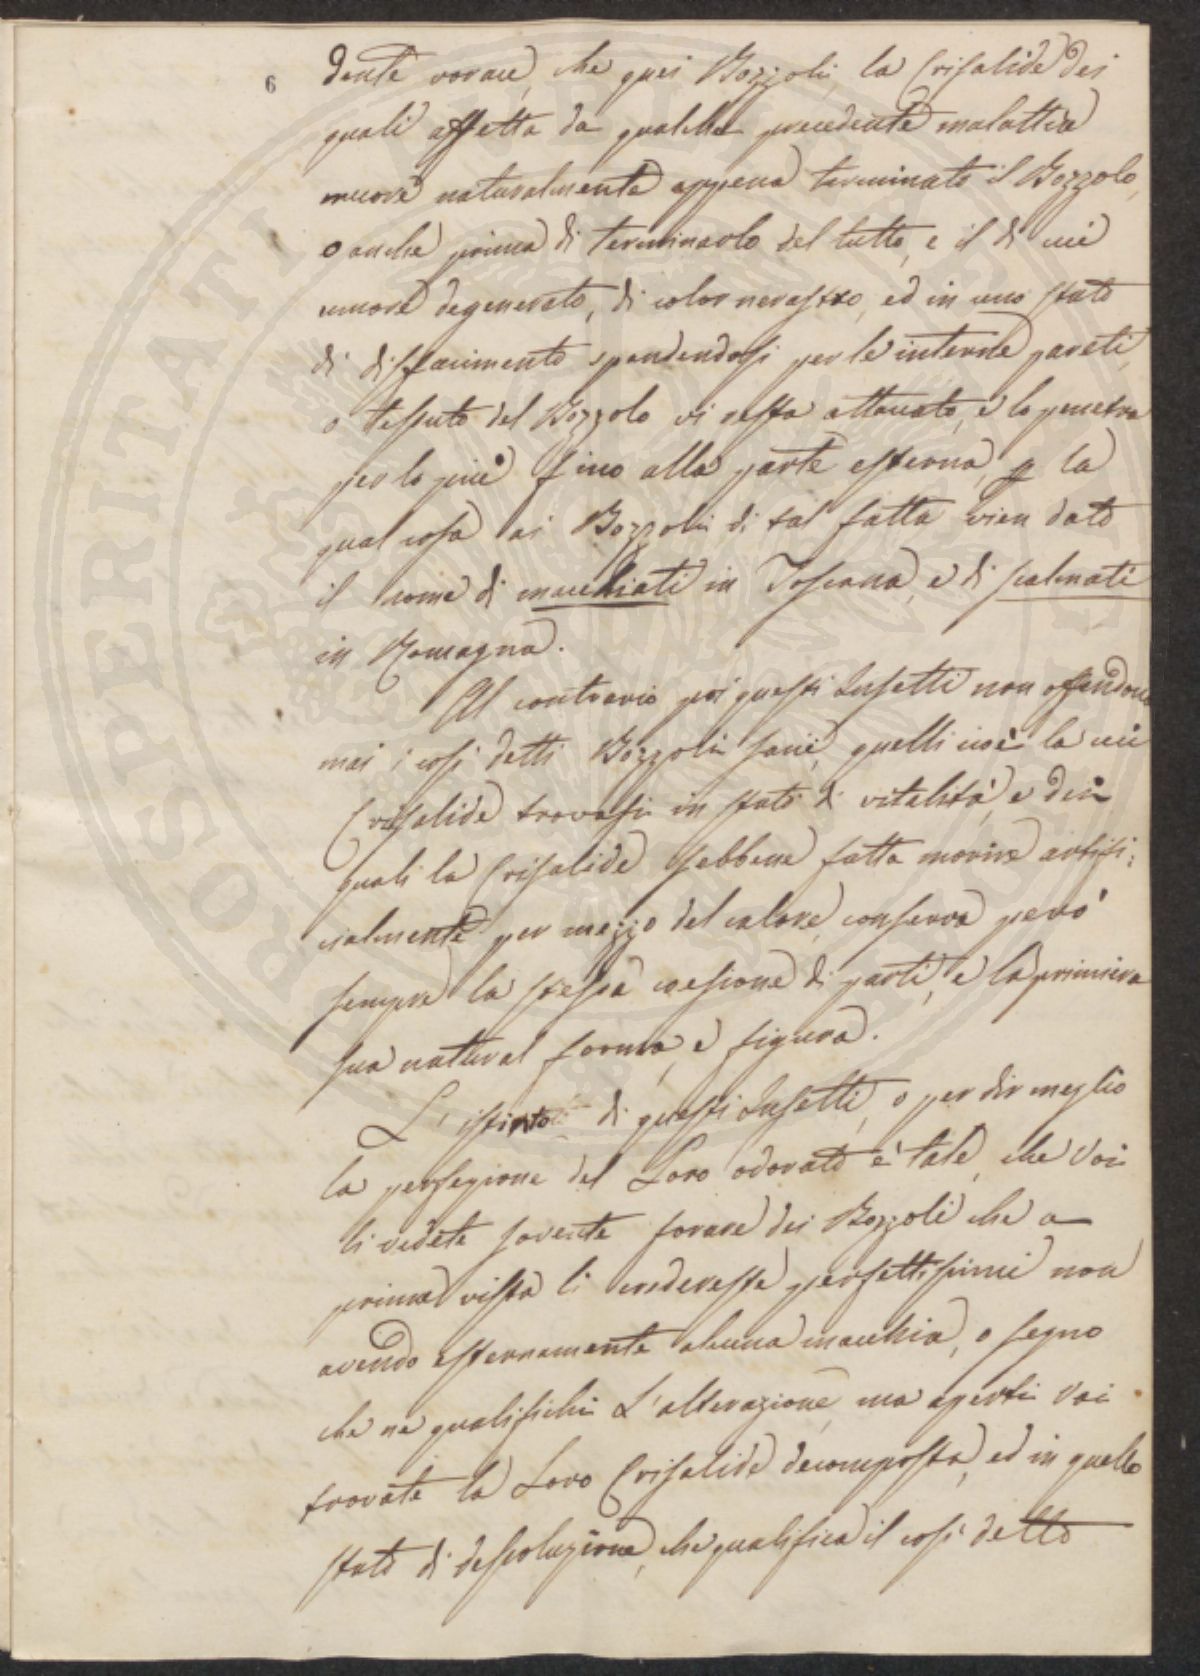 6
dente vorace, che quei Bozzoli, la Crisalide dei
quali affetta da qualche precedente malattia
muore naturalmente appena terminato il Bozzolo,
o anche prima di terminarlo del tutto, e il di cui
umore degenerato, di color nerastro, ed in uno stato
di disfacimento spandendosi per le interne pareti,
o tessuto del Bozzolo vi resta attaccato, e lo penetra
per lo più fino alla parte esterna, p la
qual cosa ai Bozzoli di tal fatta vien dato
il nome di macchiati in Toscana, e di scalmati
in Romagna.
Al contrario poi questi Insetti non offendono
mai i così detti Bozzoli sani, quelli cioè la cui
Crisalide trovasi in stato di vitalità, e dei
quali la Crisalide sebbene fatta morire artifi:
cialmente per mezzo del calore, conserva però
sempre la stessa coesione di parti, e la primiera
sua natural forma, e figura.
L'istinto di questi Insetti, o per dir meglio
la perfezione del Loro odorato è tale, che Voi
li vedete sovente forare dei Bozzoli che a
prima vista li credereste perfettissimi non
avendo esternamente alcuna macchia, o segno
che ne qualifichi L'alterazione, ma aperti Voi
trovate la Loro Crisalide decomposta, ed in quello
stato di dissoluzione, che qualifica il così detto
PROSPERITATI